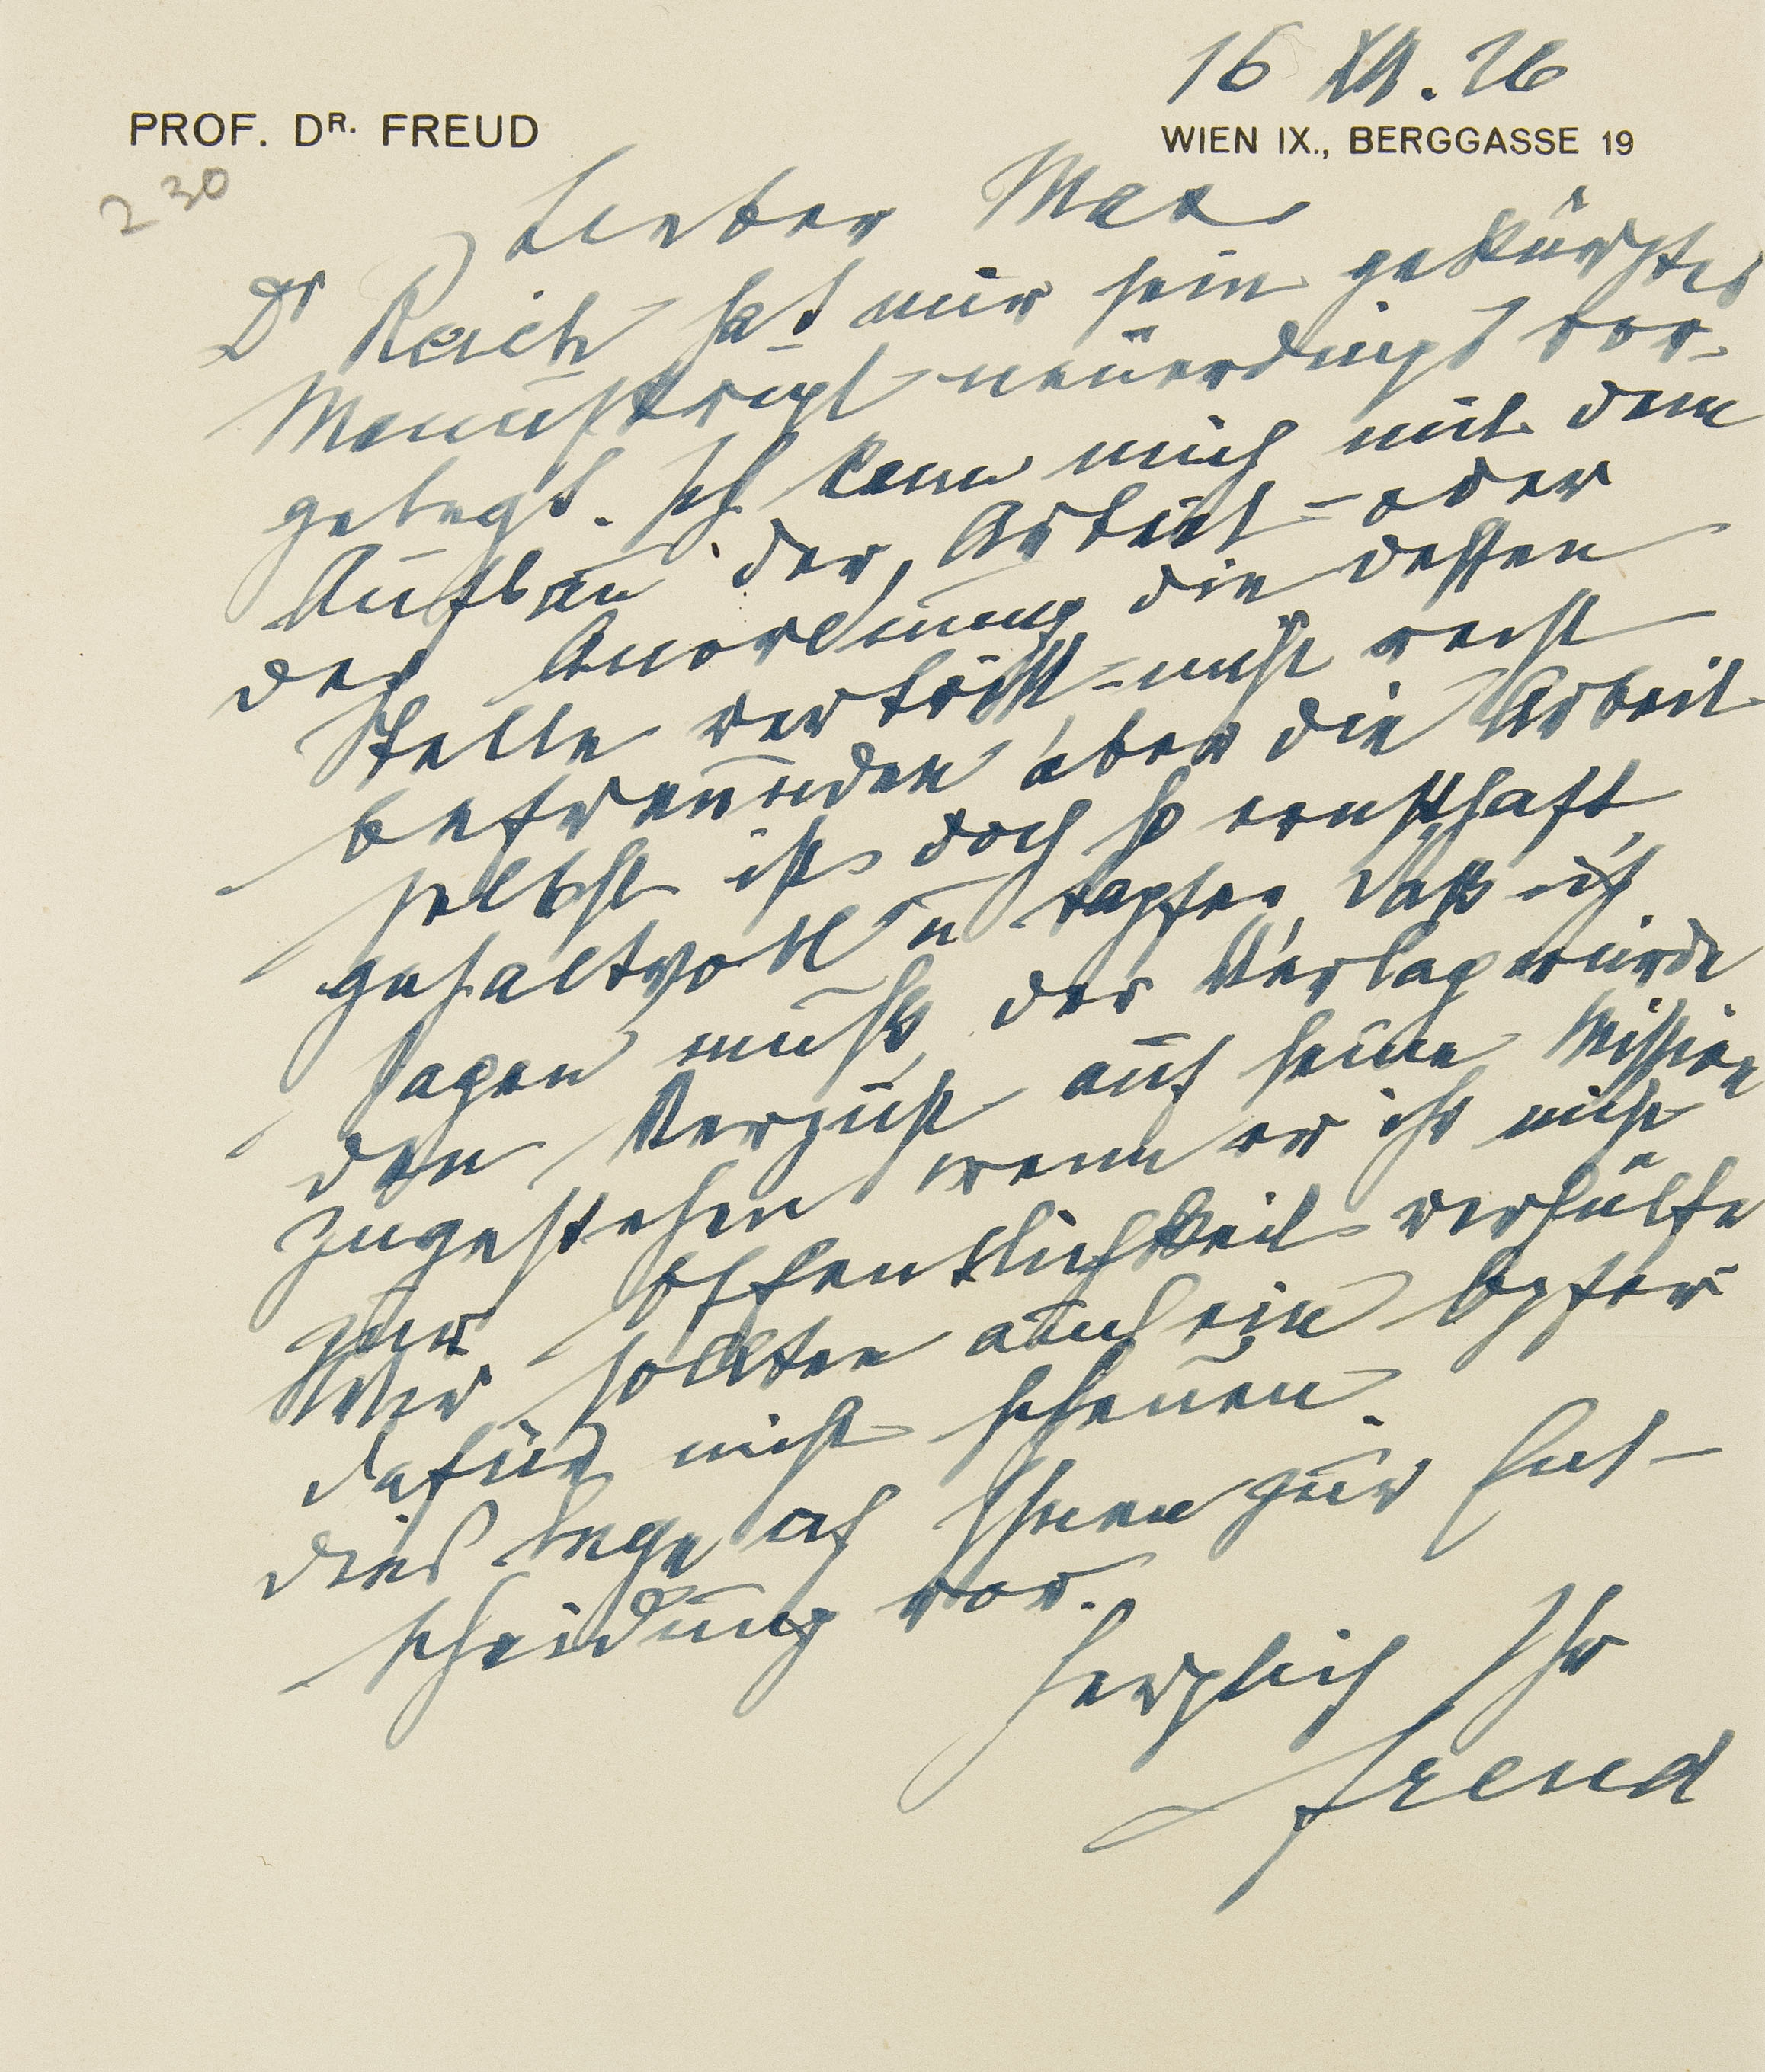 16 XII. 26
PROF. DR. FREUD
WIEN IX., BERGGASSE 19
2 30
Lieber Max
Dr Reich hat mir sein gekürztes
Manuskript neuerdings vor-
gelegt. Ich kann mich mit dem
Aufbau der Arbeit – oder
der Anordnung die dessen
Stelle vertritt – nicht recht
befreunden aber die Arbeit
selbst ist doch so ernsthaft,
gehaltvoll u tapfer, daß ich
sagen muß, der Verlag würde
den Verzicht auf seine Mission
zugestehen wenn er ihr nicht
zur Öffentlichkeit verhülfe
Wir sollten auch ein Opfer
dafür nicht scheuen.
Dies lege ich Ihnen zur Ent-
scheidung vor.
Herzlich Ihr
Freud